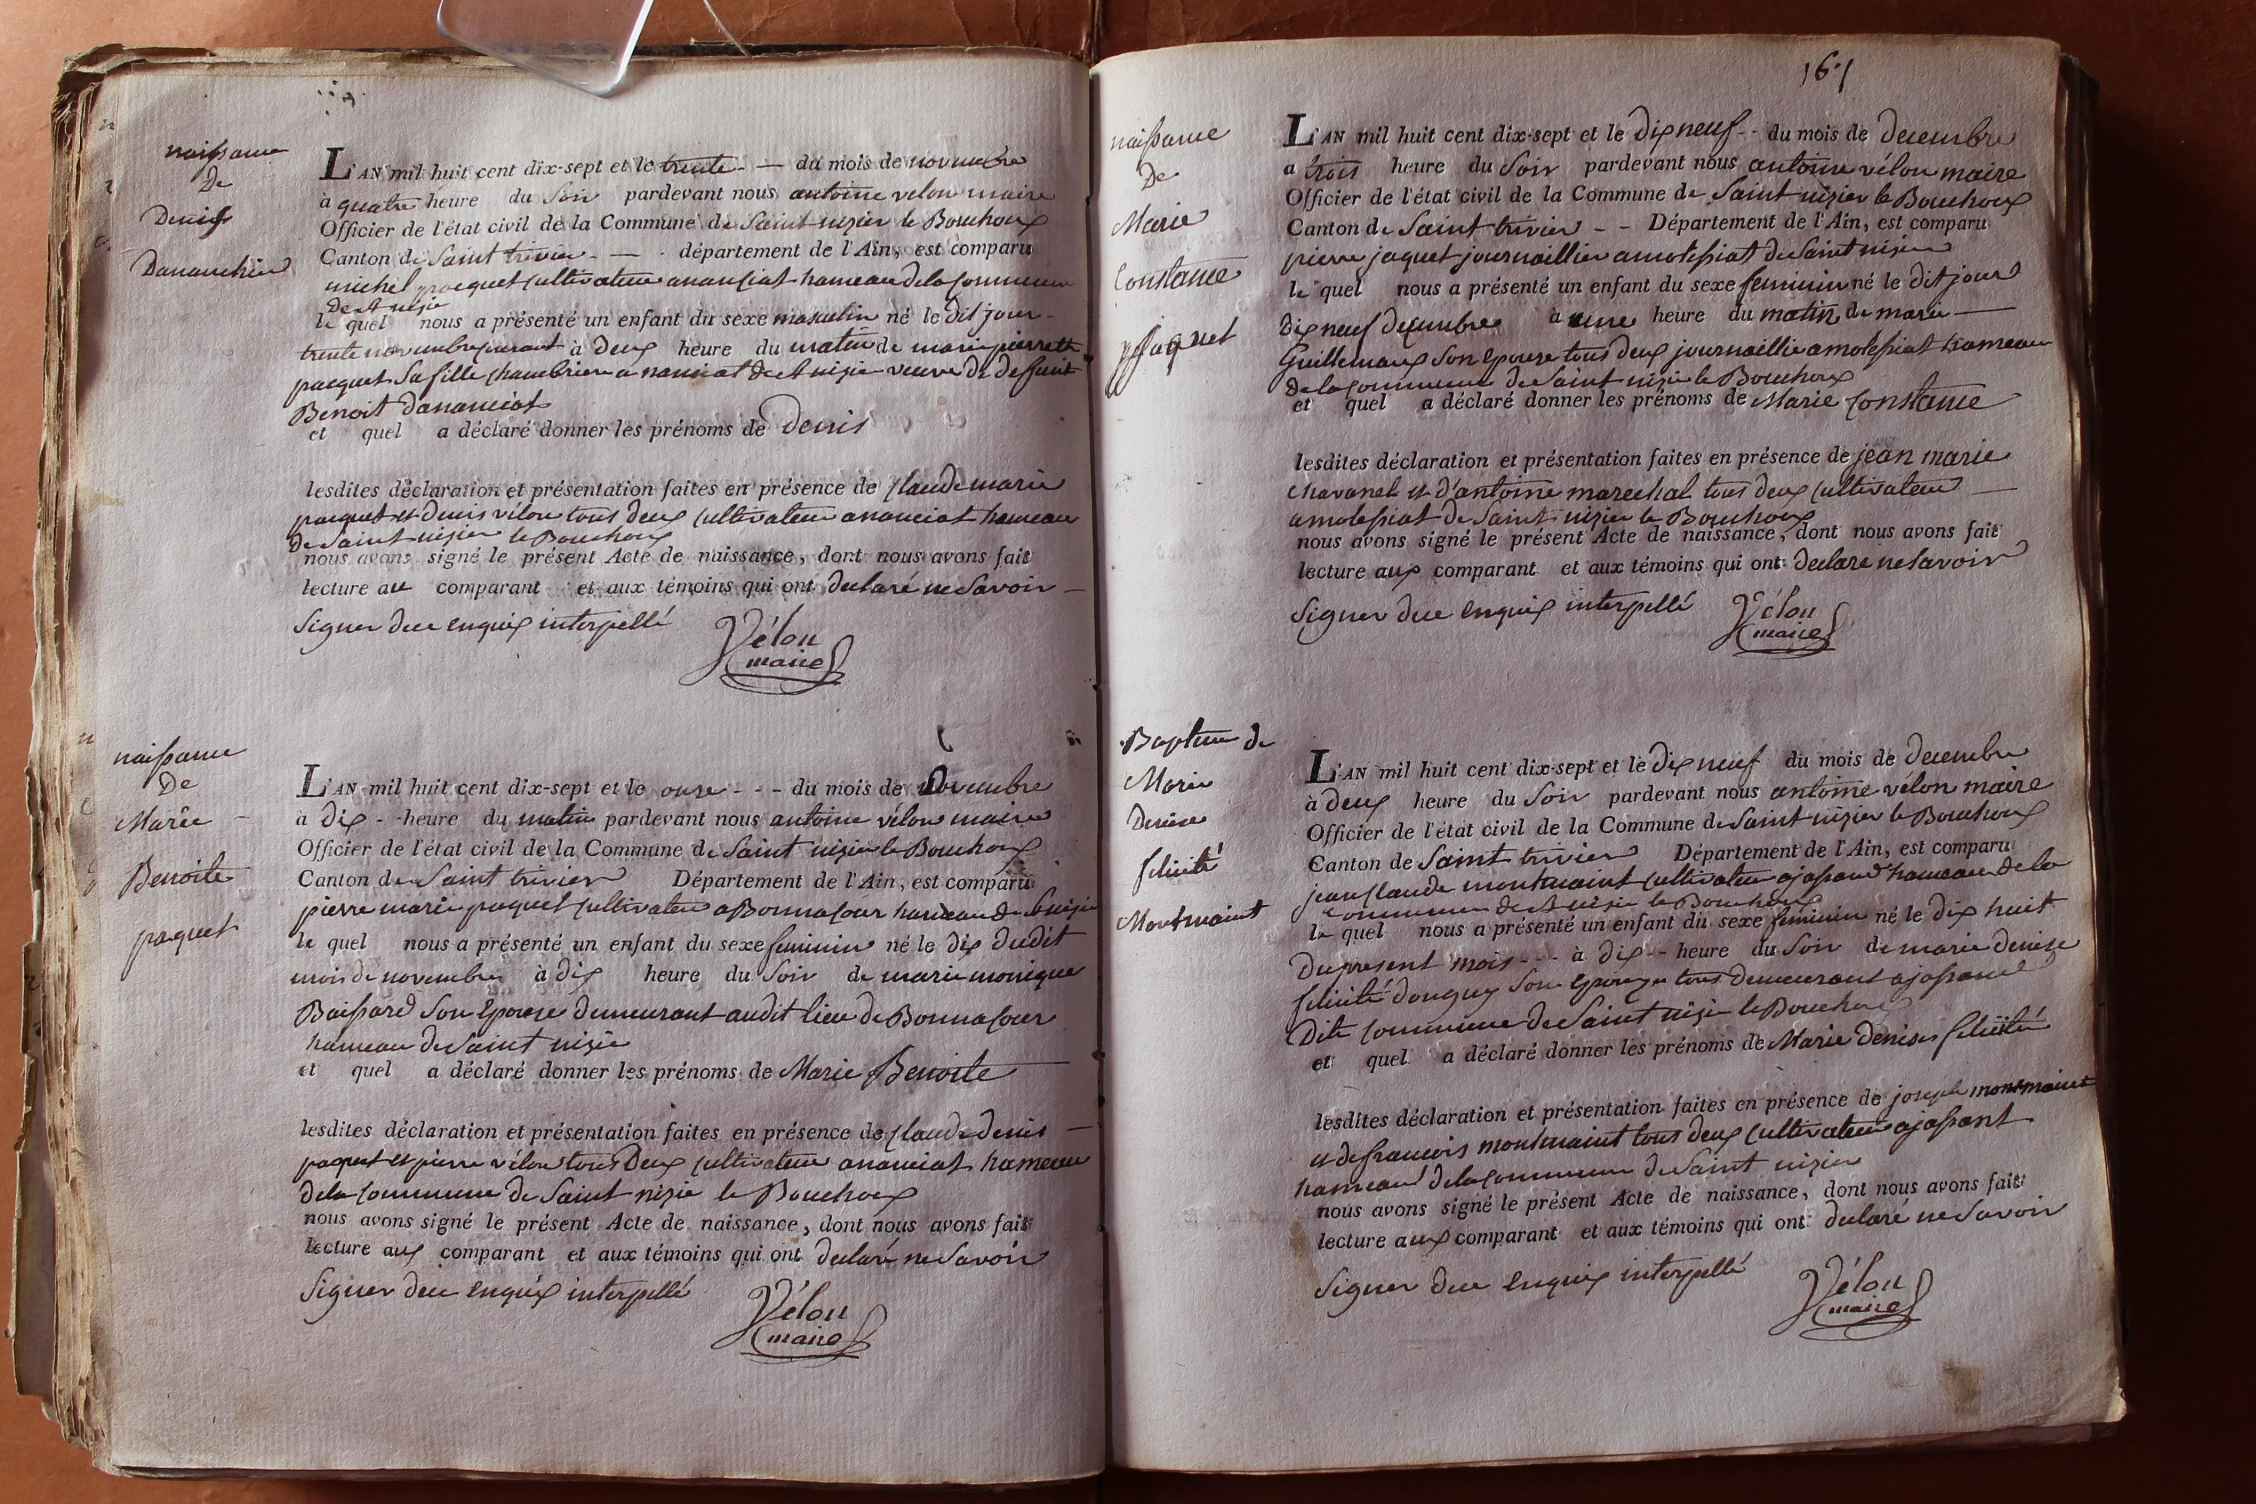 naissance
De
Denis
Dananchier
L'AN mil huit cent dix-sept et le trente - — du mois de novembre
à quatre heure du Soir pardevant nous antoine velon maire
Officier de l'état civil de la Commune de Saint nizier le Bouchoux
Canton de Saint trivier - — - département de l'Ain, est comparu
michel pacquet Cultivateur ananciat hameau de la Commune
De st nizie
le quel nous a présenté un enfant du sexe masculin né le dit jour -
trente novembre à Deux heure du matin de marie pierrette
pacquet Sa fille Chambriere a nanciat de st nizie veuve de deffunt
Benoit Dananciat
et quel a déclaré donner les prénoms de Denis
lesdites déclaration et présentation faites en présence de Claude marie
pacquet et Denis vélon tous deux Cultivateur ananciat hameau
de Saint nizier le Bouchoux
nous avons signé le présent Acte de naissance, dont nous avons fait
lecture au comparant et aux témoins qui ont declaré ne Savoir —
Signer de ce enquix interpellé
Vélon
maire
naissance
De
Marie -
Benoite
paquet
L'AN mil huit cent dix-sept et le onze - - - du mois de Novembre
à Dix - - heure du matin pardevant nous antoine vélon maire
Officier de l'état civil de la Commune de Saint nizier le Bouchoux
Canton de Saint trivier Département de l'Ain, est comparu
pierre marie paquet Cultivateur a Bonnacour hameau de st nizie
le quel nous a présenté un enfant du sexe feminin né le dix dudit
mois de novembre à dix heure du Soir de marie monique
Baissard Son Epouse demeurant audit lieu de Bonnacour
hameau de Saint nizie
et quel a déclaré donner les prénoms de Marie Benoite —
lesdites déclaration et présentation faites en présence de Claude denis —
paquet et pierre vélon tous Deux Cultivateur ananciat hameau
de la Commune de Saint nizie le Bouchoux
nous avons signé le présent Acte de naissance, dont nous avons fait
lecture aux comparant et aux témoins qui ont declaré ne Savoir
Signer de ce enquix interpellé
Vélon
maire
161
naissance
De
Marie
Constance
Jaquet
L'AN mil huit cent dix-sept et le dix neuf - - du mois de decembre
a trois heure du Soir pardevant nous antoine vélon maire
Officier de l'état civil de la Commune de Saint nizier le Bouchoux
Canton de Saint trivier - - Département de l'Ain, est comparu
pierre jaquet journaillier a molessiat de Saint nizier
le quel nous a présenté un enfant du sexe feminin né le dit jour
Dix neuf decembre à une heure du matin de marie —
Guillemaux Son Epouse tous deux journaillie a molessiat hameau
de la Commune de Saint nizie le Bouchoux
et quel a déclaré donner les prénoms de Marie Constance
lesdites déclaration et présentation faites en présence de jean marie
Chavanel et d'antoine marechal tous deux Cultivateur —
a molessiat de Saint nizier le Bouchoux
nous avons signé le présent Acte de naissance, dont nous avons fait
lecture aux comparant et aux témoins qui ont declare ne Savoir
Signer de ce enquix interpellé
Vélon
maire
Bapteme de
Marie
Denise
felicité
Montmaint
L'AN mil huit cent dix-sept et le dix neuf du mois de decembre
à deux heure du Soir pardevant nous antoine vélon maire
Officier de l'état civil de la Commune de Saint nizier le Bouchoux
Canton de Saint trivier Département de l'Ain, est comparu
jean Claude montmaint Cultivateur a hameau de la
Commune de st nizie le Bouchoux
le quel nous a présenté un enfant du sexe feminin né le dix huit
Du present mois - - - à dix - - heure du Soir de marie denise
felicité Son Epouze tous demeurant a
Dite Commune de Saint nizie le Bouchoux
et quel a déclaré donner les prénoms de Marie denise felicité
lesdites déclaration et présentation faites en présence de joseph montmaint
et de francois montmaint tous deux Cultivateur a jassant
hameau de la Commune de Saint nizier
nous avons signé le présent Acte de naissance, dont nous avons fait
lecture aux comparant et aux témoins qui ont declaré ne Savoir
Signer de ce enquix interpellé
Vélon
maire